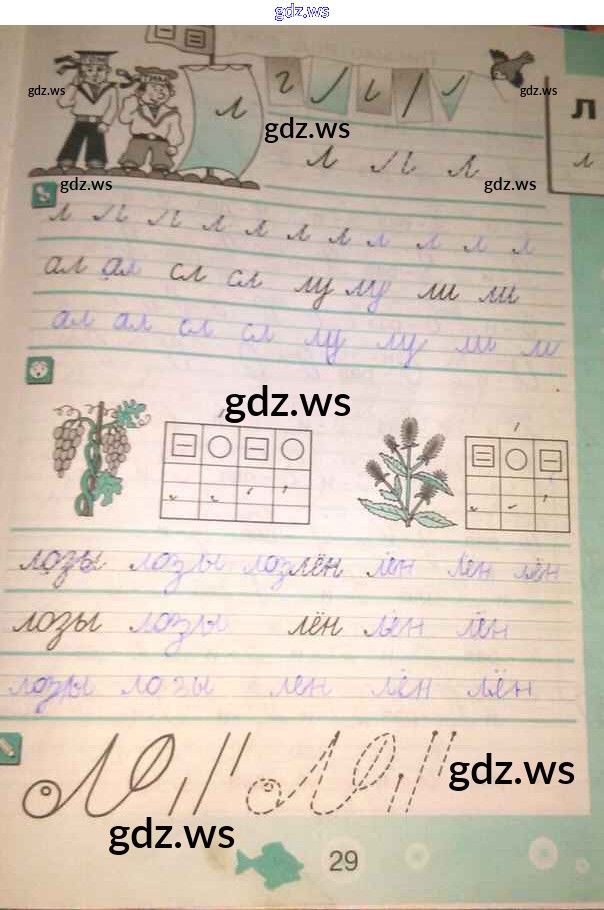 gdz.ws
г л и г л
gdz.ws
gdz.ws
л
gdz.ws
л
л л л
л
gdz.ws
gdz.ws
л л л л л л л л л л л
ал ал сл сл лу лу ли ли
ал ал сл сл лу лу ли ли
gdz.ws
лозы лозы лоз лён лён лён лён
лозы лозы лён лён лён
лозы лозы лен лён лён
gdz.ws
gdz.ws
29